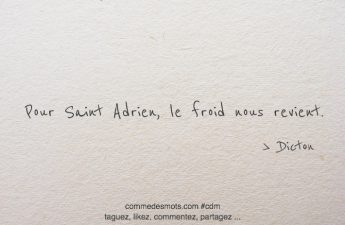 Pour Saint Adrien, le froid nous revient.
> Dicton
commedesmots.com #cdm
taguez, likez, commentez, partagez ...